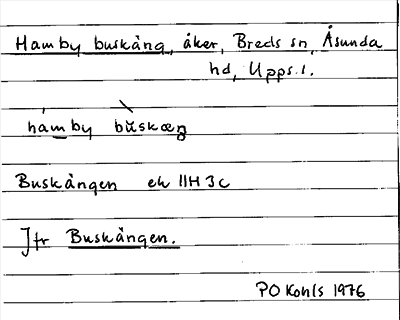 Hamby buskäng, åker, Breds sn, Åsunda
hd, Upps. l.
hamby buskæŋ
Buskängen ek 11H 3c
Jfr Buskängen.
PO Kohls 1976